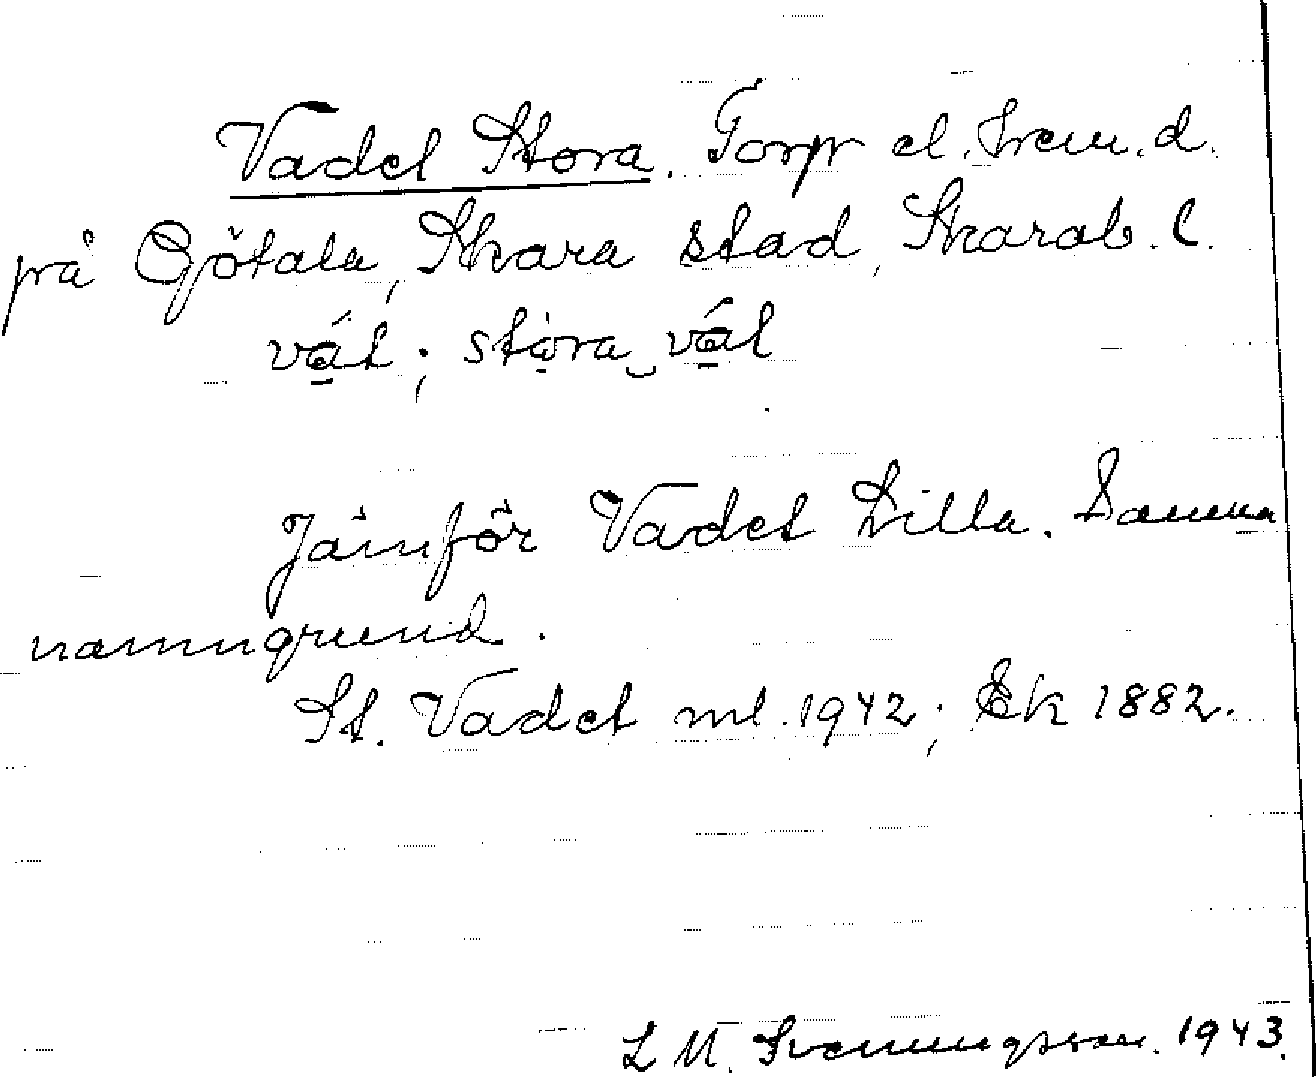 Vadet Stora. Torp el. hem.d.
på Götala, Skara stad, Skarab. l.
vát; stòra vát
Jämför Vadet Lilla. Samma
namngrund.
St. Vadet ml. 1942; Ek 1882.
L M. Svenungsson. 1943.